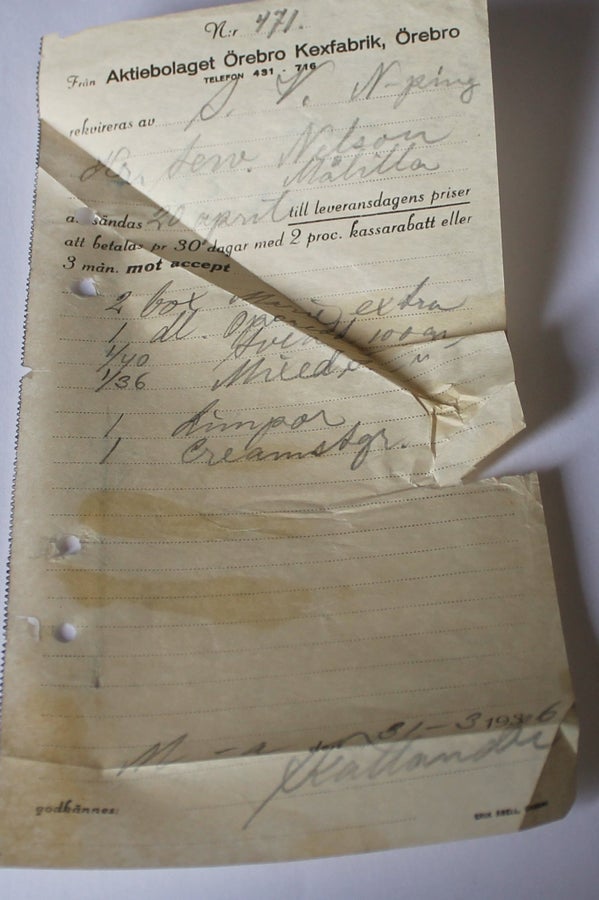 N:r 471.
Från Aktiebolaget Örebro Kexfabrik, Örebro
TELEFON 431 - 716
S. V. N-ping
rekvireras av
Herr Nilson
Målilla
a. sändas 20 april till leveransdagens priser
att betalas pr 30 dagar med 2 proc. kassarabatt eller
3 mån. mot accept
2 box Marie extra
1 dl.
1/40 100 gr.
1/36 Mixed "
1 Limpor
1 Creamstgr.
M - a den 31-3 1936
godkännes: